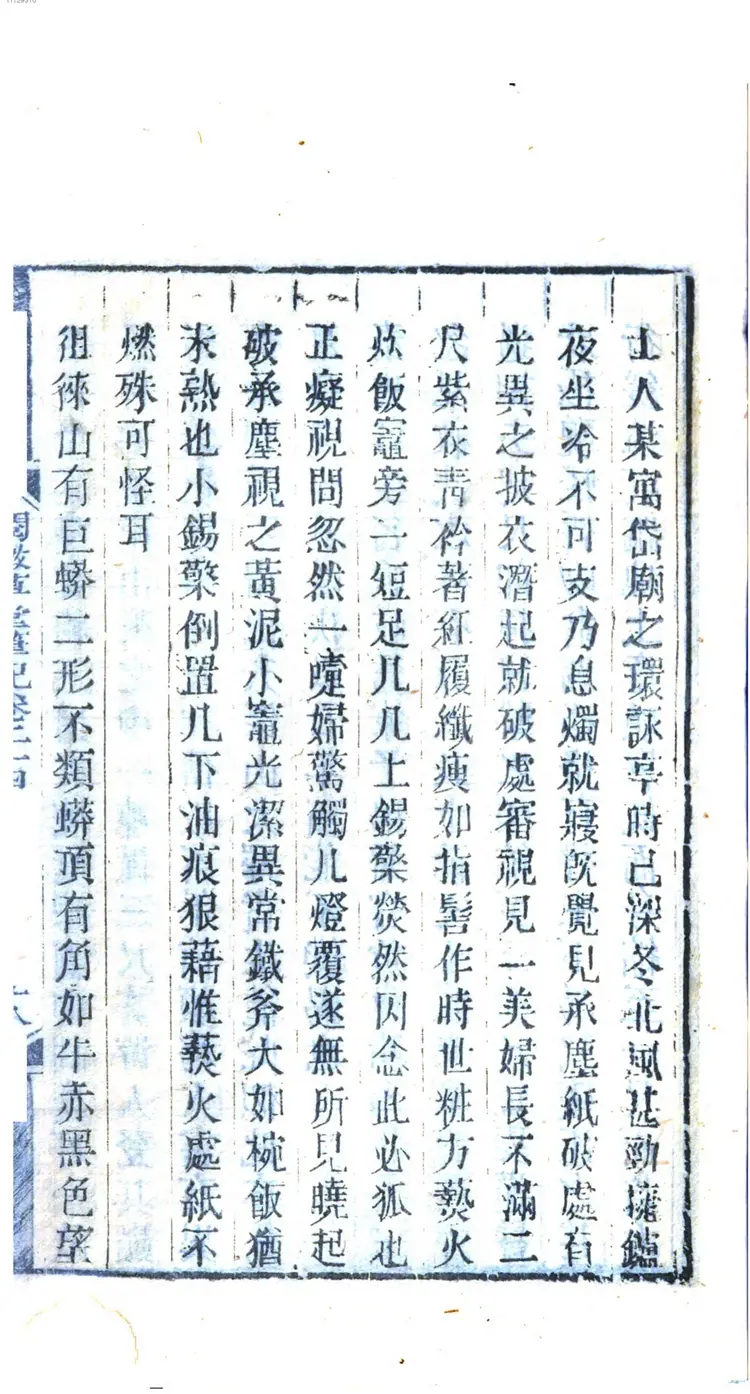 士人某寓岱廟之環詠亭時已深冬北風甚勁擁鑪
夜坐冷不可支乃息燭就寢既覺見承塵紙破處有
光異之披衣潛起就破處審視見一美婦長不滿二
尺紫衣青袴著紅履纖瘦如指髻作時世粧方爇火
炊飯竈旁一短足几几上錫檠熒然因念此必狐也
正凝視間忽然一嚏婦驚觸几燈覆遂無所見曉起
破承塵視之黃泥小竈光潔異常鐵釜大如椀飯猶
未熟也小錫檠倒置几下油痕狼藉惟爇火處紙不
燃殊可怪耳
徂徠山有巨蟒二形不類蟒頂有角如牛赤黑色望
閱微草堂筆記卷二十四
十八